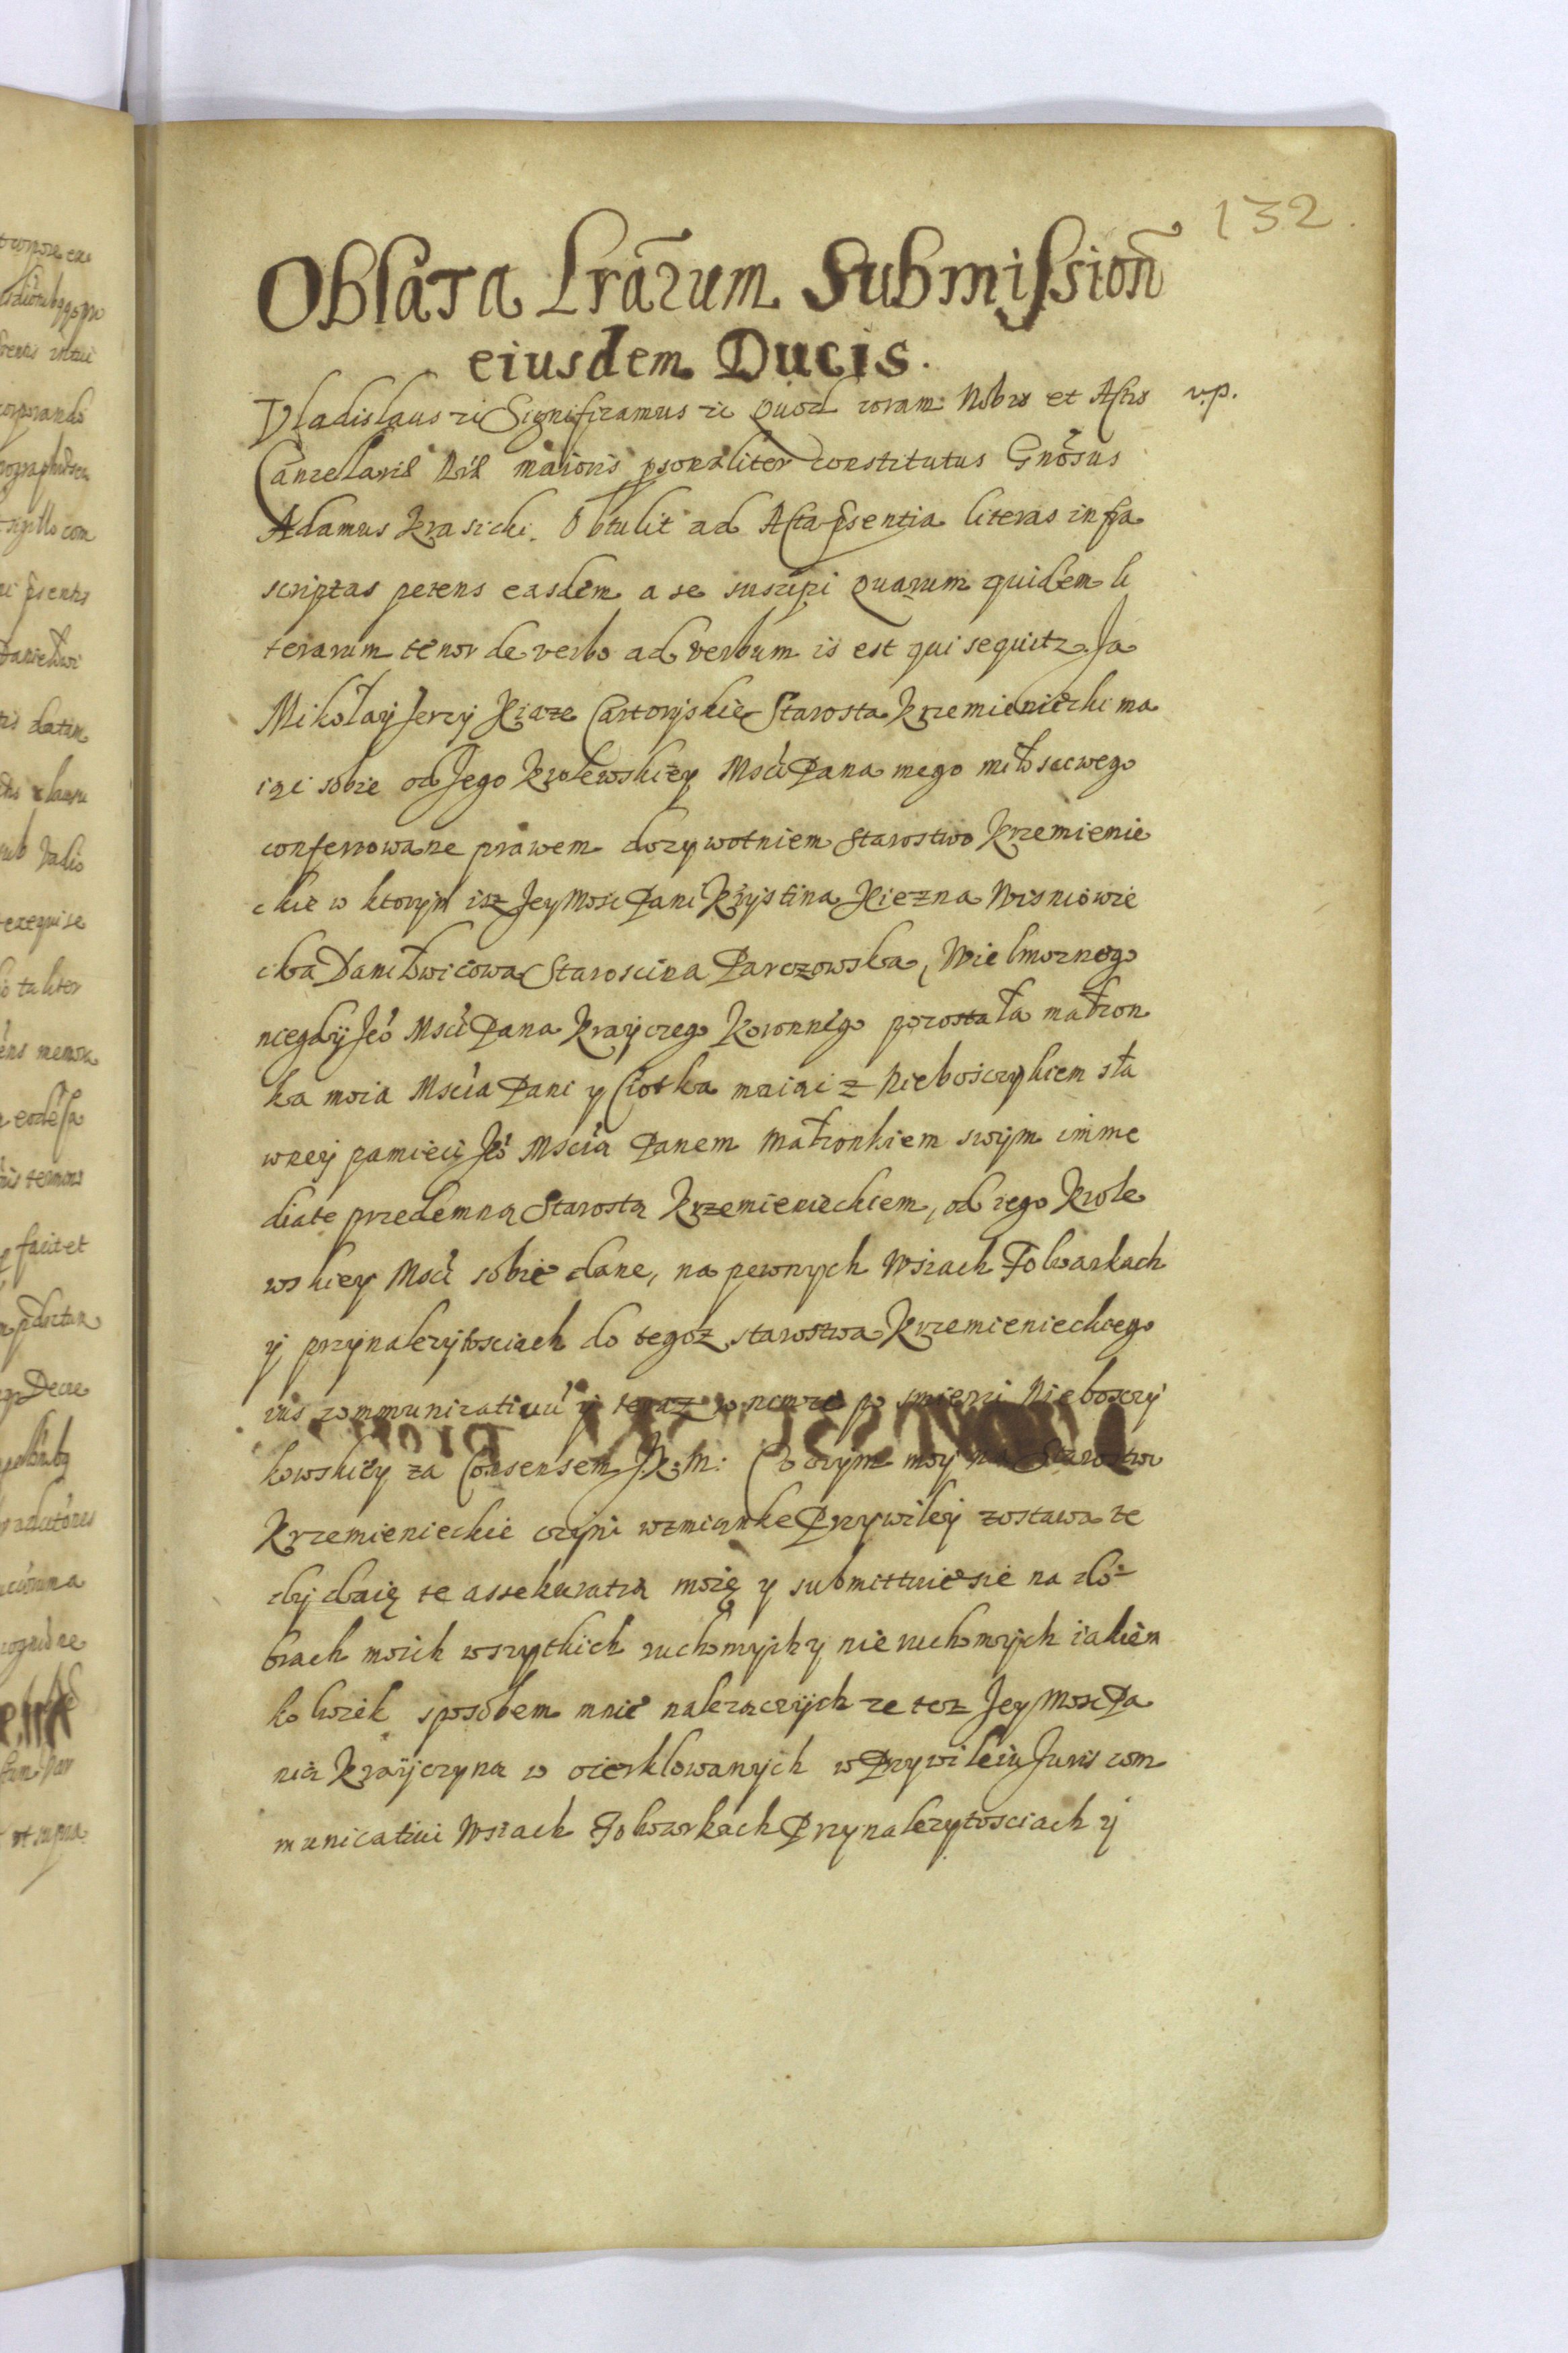 132.
Oblata Lrārum Submissioñ
eiusdem Ducis.
Vladislaus zc Significamus zc Quod coram Nobis et Actis v.p.
Cancellariæ Rñi maioris psonaliter constitutus Gnōsus
Adamus Krasicki. Obtulit ad Acta psentia literas infra
scriptas petens easdem a se suscipi Quarum quidem li
terarum tenor de verbo ad verbum is est qui sequitz Ja
Mikołay Jerzy Xiąze Cartoryskie Starosta Krzemieniecki ma
iąc sobie od Jego Krolewskiey Msći Pana mego miłosciwego
conferowane prawem dozywotniem Starostwo Krzemienie
ckie w ktorym isz Jey Mosc Pani Krystina Xiezna Wisniowie
cka Daniłowicowa Staroscina Parczowska, Wielmoznego
niegdy Jeo Msći Pana Krayczego Koronnego pozostała małzon
ka moia Mscia Pani y Ciotka maiąc z Niebosczykiem sła
wney pamięci Jeo Mscia Panem małzonkiem swym imme
diate przedemną Starostą Krzemienieckiem, od iego Krole
wskiey Msći sobie dane, na pewnych Wsiach Folwarkach
y przynalezytosciach do tegoz starostwa Krzemienieckiego
ius communicatiuu y teraz po smierci Niebosczy
kowskiey za Consensem J. K. M: Co czym moy na Starostwo
Krzemienieckie czyni wzmianke Przywiley zostawa te
dy daię te assekuratią moię y submittuie sie na do
brach moich wszytkich ruchomych y nieruchomych iakiem
kolwiek sposobem mnie nalezacych ze tez Jey Mosc Pa
nia Krayczyna w ocierklowanych w Przywileiu Juris com
municatiui Wsiach Folwarkach Przynalezytosciach y